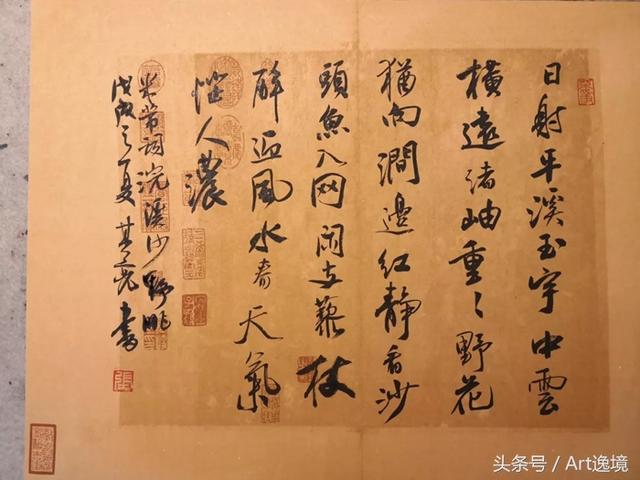 日射平溪玉宇中雲
橫遠渚岫重〻野花
猶向澗邊紅靜看沙
頭魚入网閑支藜杖
醉迎風水春天氣
惱人濃
米芾詞浣溪沙野眺
戊戌之夏 其亮書
头条号 / Art逸境